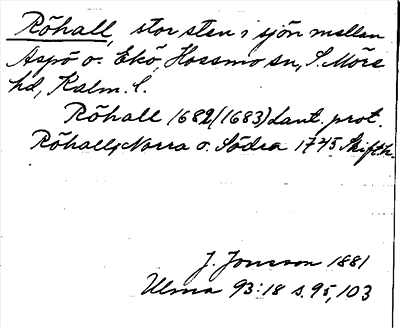 Röhall, stor sten i sjön mellan
Aspö o. Ekö, Hossmo sn, S. Möre
hd, Kalm. l.
Röhall 1682 (1683) Lant. prot.
Röhall, Norra o. Södra 1745 Skifth.
J. Jonsson 1881
Ulma 93:18 s. 95, 103